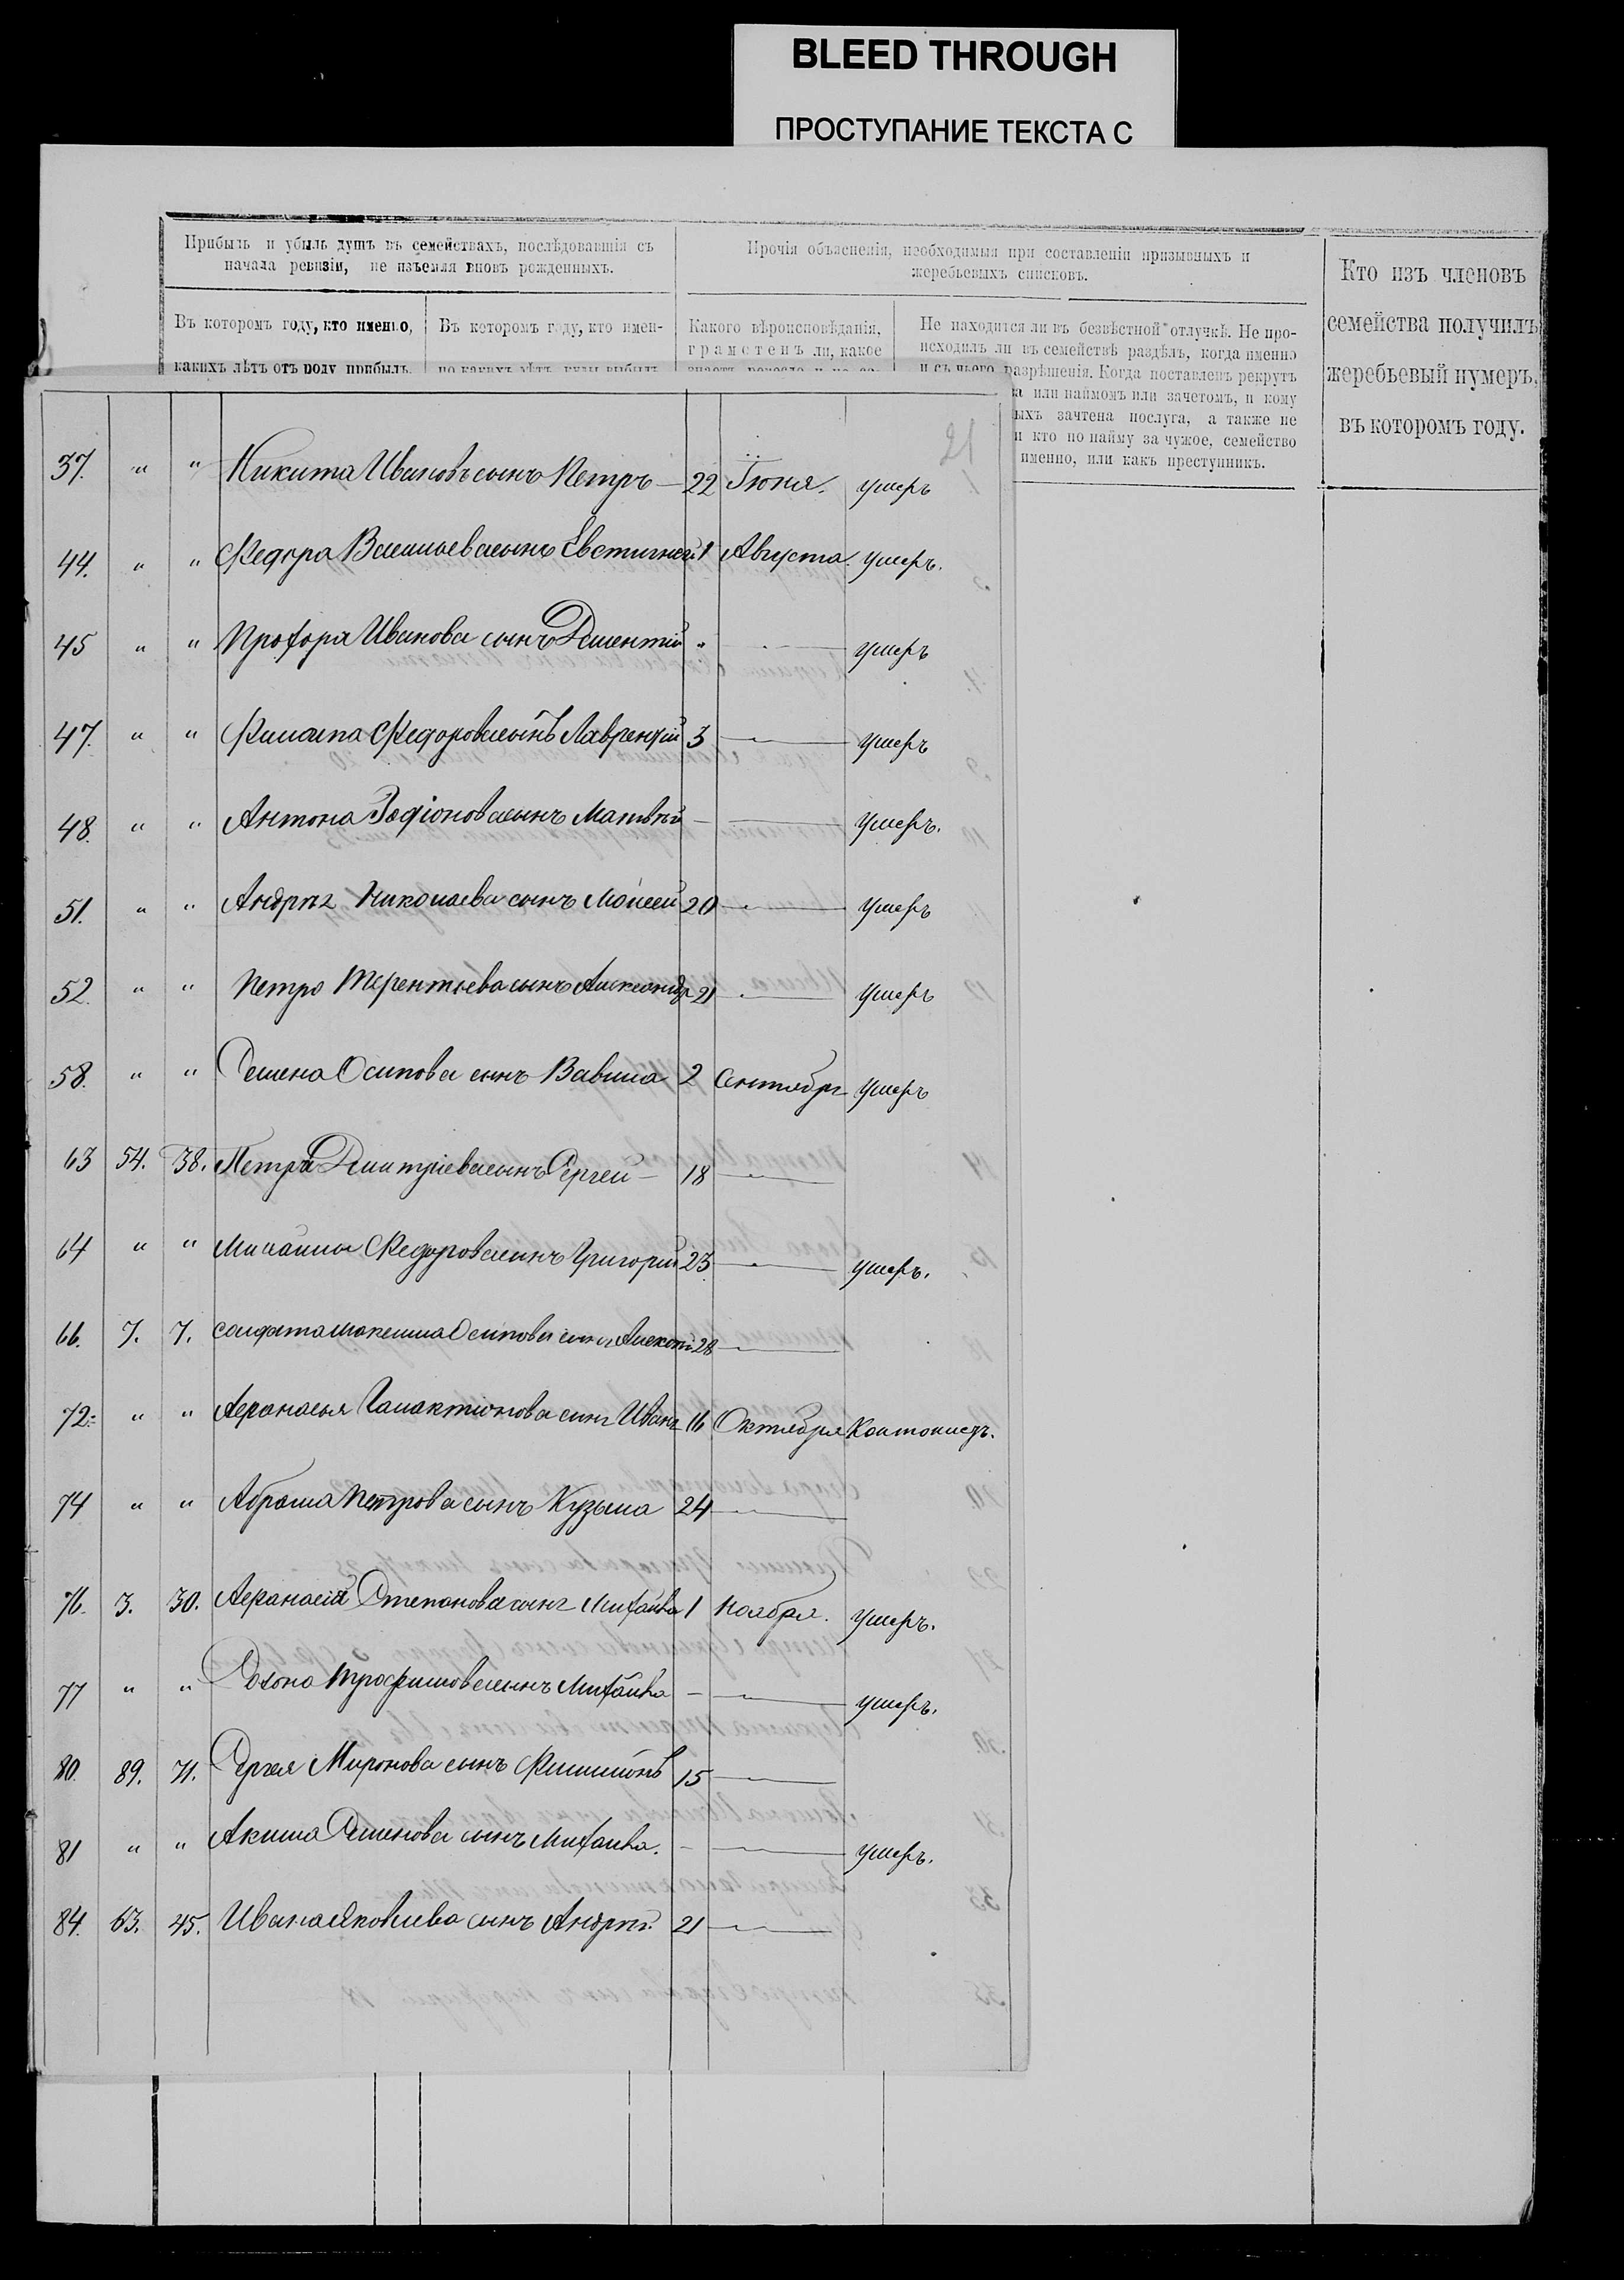 BLEED THROUGH
ПРОСТУПАНИЕ ТЕКСТА С
Прибыль и убыль душъ въ семействахъ, послѣдовавшія съ
начала ревизіи, не изъемля вновь рожденныхъ.
Прочія объясненія, необходимыя при составленіи призывныхъ и
жеребьевыхъ списковъ.
Кто изъ членовъ
семейства получилъ
жеребьевый нумеръ,
въ которомъ году.
Въ которомъ году, кто именно,
какихъ лѣтъ отъ роду прибылъ.
Въ которомъ году, кто имен-
но какихъ лѣтъ, куда выбылъ
Какого вѣроисповѣданія,
грамотенъ ли, какое
Не находится ли въ безвѣстной отлучкѣ. Не про-
исходилъ ли въ семействѣ раздѣлъ, когда именно
и съ чьего разрѣшенія. Когда поставленъ рекрутъ
а или наймомъ или зачетомъ, и кому
ыхъ зачтена послуга, а также не
и кто по найму за чужое, семейство
именно, или какъ преступникъ.
21
37. " " Никита Ивановъ сынъ Петръ — 22 Іюня. умеръ
44. " " Федора Васильева сынъ Евстигней 1 Августа. умеръ.
45 " " Прохора Иванова сынъ Дементій " — умеръ
47. " " Филипа Федорова сынъ Лаврентій 3 — умеръ
48. " " Антона Родіонова сынъ Матвѣй — — умеръ.
51. " " Андрѣя Николаева сынъ Моисей 20 — умеръ
52. " " Петра Терентьева сынъ Александр 21 — умеръ
58. " " Семена Осипова сынъ Вавила 2 Сентября умеръ
63 54. 38. Петра Дмитріева сынъ Сергей — 18 —
64 " " Михаила Федорова сынъ Григорій 23 — умеръ.
66. 7. 7. солдата Максима Осипова сынъ Алексѣй 28 —
72. " " Афанасья Галактіонова сынъ Иванъ 16 Октября Кантонистъ.
74 " " Абрама Петрова сынъ Кузьма 24 —
76. 3. 30. Афанасія Степанова сынъ Михайла 1 Ноября. умеръ.
77 " " Софона Трофимова сынъ Михайла — — умеръ.
80. 89. 71. Сергея Миронова сынъ Филимонъ 15 —
81 " " Акима Семенова сынъ Михаила. — — умеръ.
84. 63. 45. Ивана Яковлева сынъ Андрѣй. 21 —